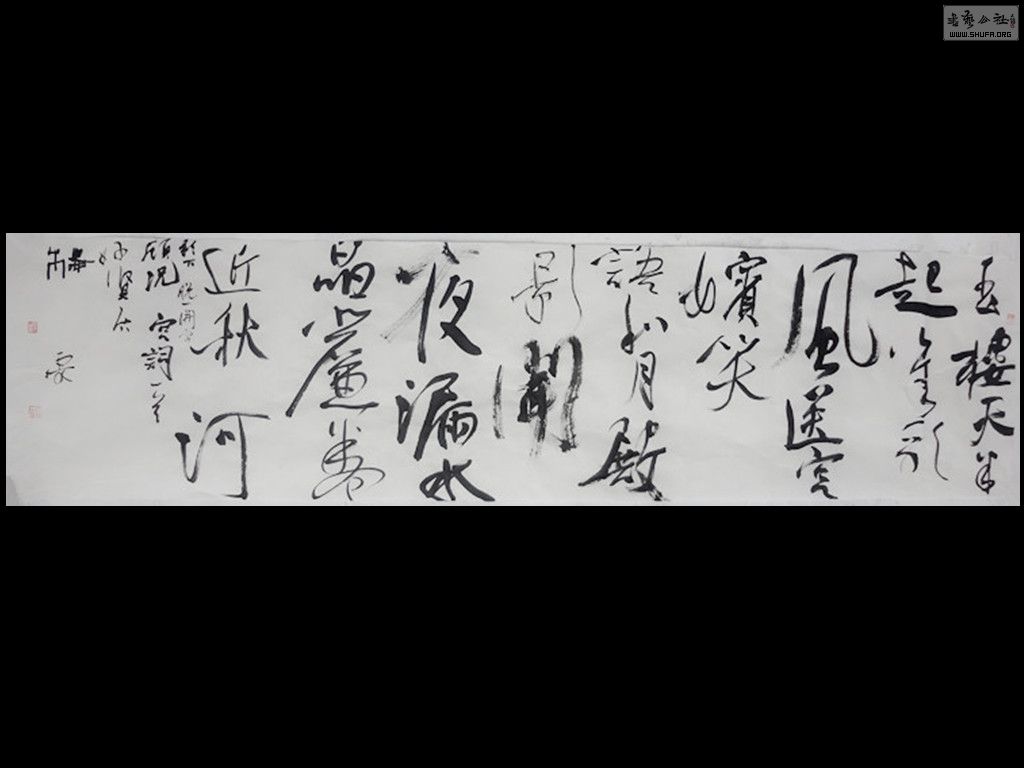 玉樓天半
起笙歌
風送宮
嬪笑
語和月殿
影開聞
夜漏水
晶簾卷
近秋河
影下脱開字
顧況宮詞一首
WWW.SHUFA.ORG